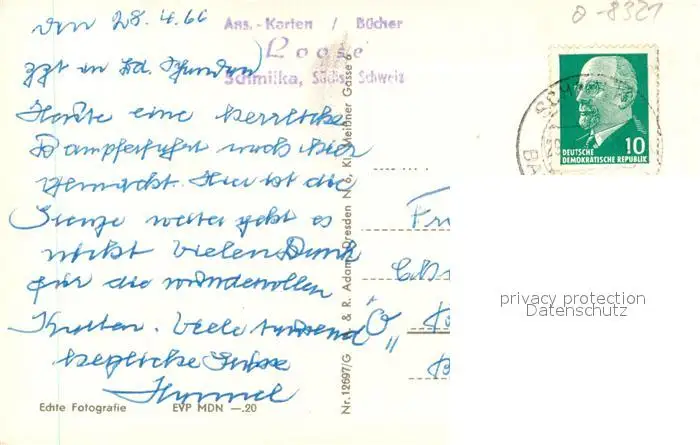 den 28.4.66
zzt in Bd. Schandau
Heute eine herrliche
Dampferfahrt nach hier
gemacht. Hier ist die
Grenze weiter geht es
nicht vielen Dank
für die wundervollen
Karten. Viele tausend
herzliche Grüße
Ans.-Karten / Bücher
Loose
Schmilka, Sächs. Schweiz
0-8321
DEUTSCHE
DEMOKRATISCHE REPUBLIK
10
SCHM
BA
Nr. 12697/G & R. Adam, Dresden N 6, Kl. Meißner Gasse 6
privacy protection
Datenschutz
Echte Fotografie EVP MDN —.20